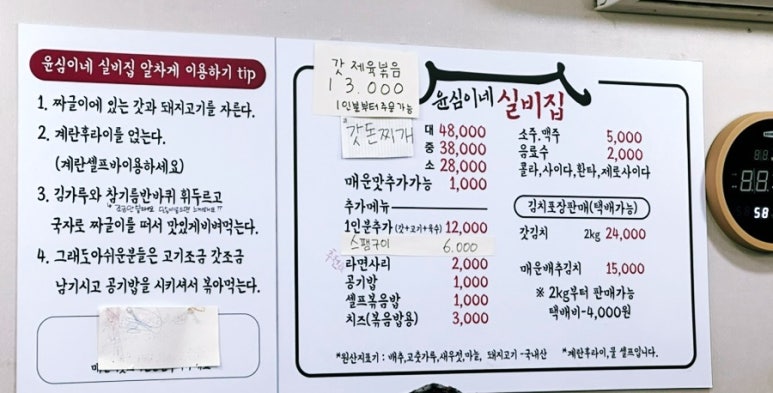 윤심이네 실비집 알차게 이용하기 tip
1. 짜글이에 있는 갓과 돼지고기를 자른다.
2. 계란후라이를 얹는다.
(계란셀프바이용하세요)
3. 김가루와 참기름반바퀴 휘두르고
국자로 짜글이를 떠서 맛있게비벼먹는다.
4. 그래도아쉬운분들은 고기조금 갓조금
남기시고 공기밥을 시키셔서 볶아먹는다.
갓 제육볶음
13.000
1인분부터 주문가능
윤심이네 실비집
갓돈찌개
대 48,000
중 38,000
소 28,000
매운맛추가가능 1,000
추가메뉴
1인분추가 (갓+고기+육수) 12,000
스팸구이 6.000
라면사리 2,000
공기밥 1,000
셀프볶음밥 1,000
치즈(볶음밥용) 3,000
소주.맥주 5,000
음료수 2,000
콜라,사이다,환타,제로사이다
김치포장판매(택배가능)
갓김치 2kg 24,000
매운배추김치 15,000
※ 2kg부터 판매가능
택배비-4,000원
*원산지표기 : 배추,고춧가루,새우젓,마늘, 돼지고기-국내산 *계란후라이,물 셀프입니다.
58